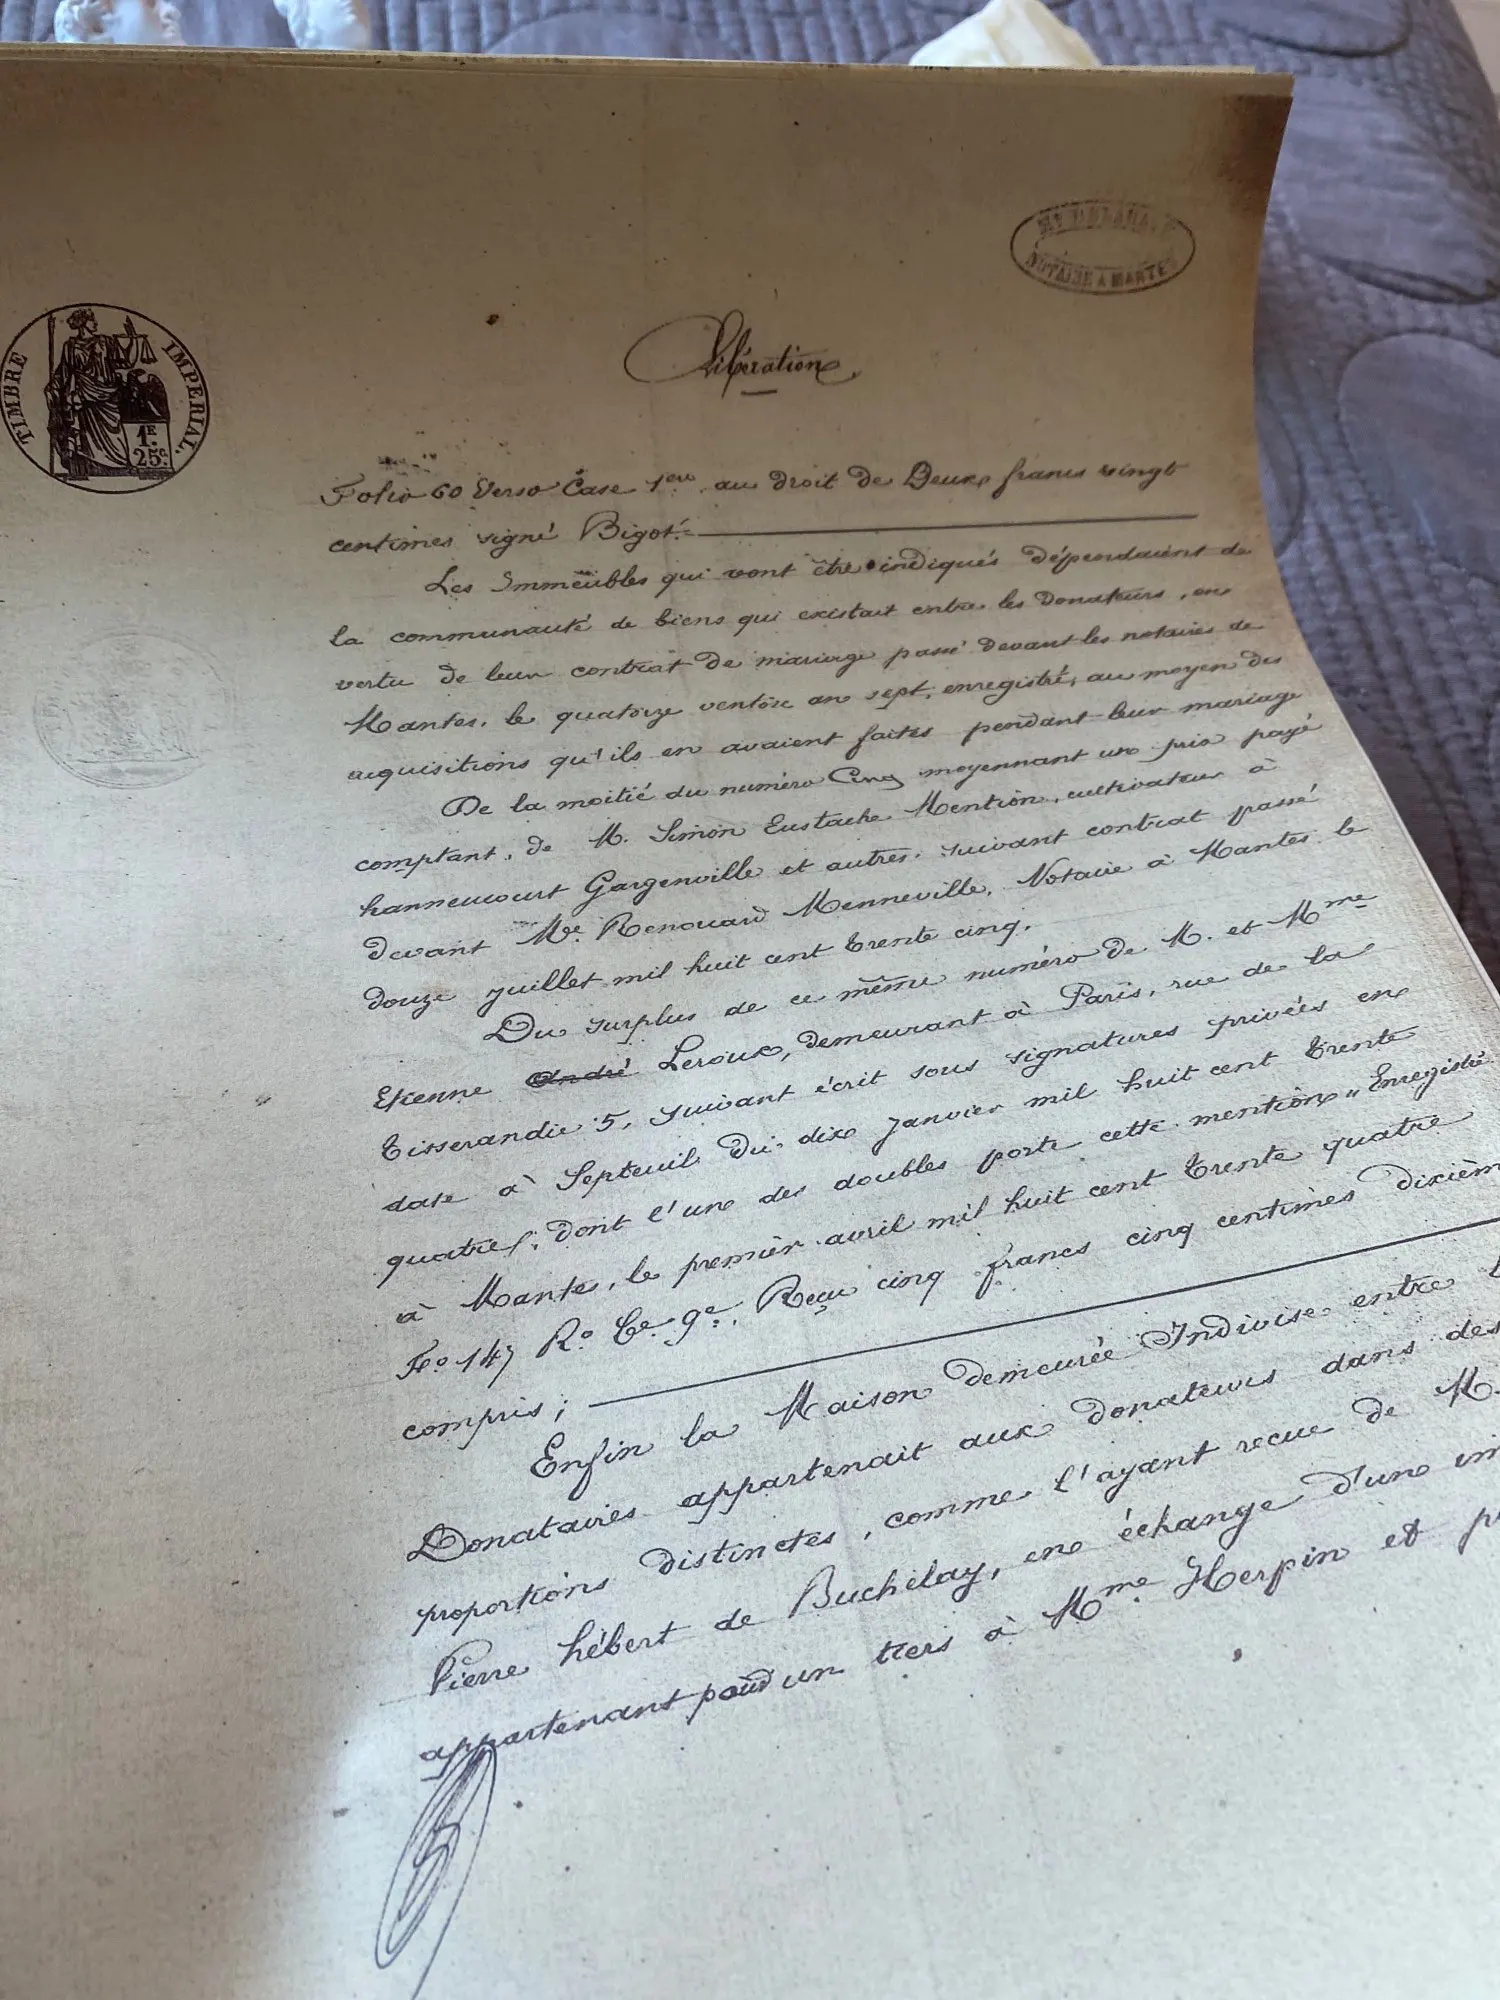 TIMBRE IMPERIAL.
1F. 25c.
NOTAIRE A MANTES
Libération
Folio 60 Verso Case 1ere au droit de Deux francs vingt
centimes signé Bigot.
Les Immeubles qui vont être indiqués dépendaient de
la communauté de biens qui existait entre les donateurs, en
vertu de leur contrat de mariage passé devant les notaires de
Mantes, le quatorze ventôse an sept, enregistré, au moyen des
acquisitions qu'ils en avaient faites pendant leur mariage
De la moitié du numéro Cinq moyennant un prix payé
comptant, de M. Simon Eustache Mention, cultivateur à
hanneucourt Gargenville et autres, suivant contrat passé
devant Me. Renouard Menneville, Notaire à Mantes le
douze juillet mil huit cent trente cinq.
Du surplus de ce même numéro de M. et Mme
Etienne André Leroux, demeurant à Paris, rue de la
Tisserandie 5, suivant écrit sous signatures privées en
date à Septeuil du dix janvier mil huit cent trente
quatre, dont l'un des doubles porte cette mention "Enregistré
à Mantes, le premier avril mil huit cent trente quatre
Fo. 147 Ro. Ce. 9e. Reçu cinq francs cinq centimes dixième
compris;
Enfin la Maison demeurée Indivise entre
Donataires appartenait aux donateurs dans des
proportions distinctes, comme l'ayant recue de M.
Pierre hébert de Buchelay, en échange d'une
appartenant pour un tiers à Mme. Herpin et